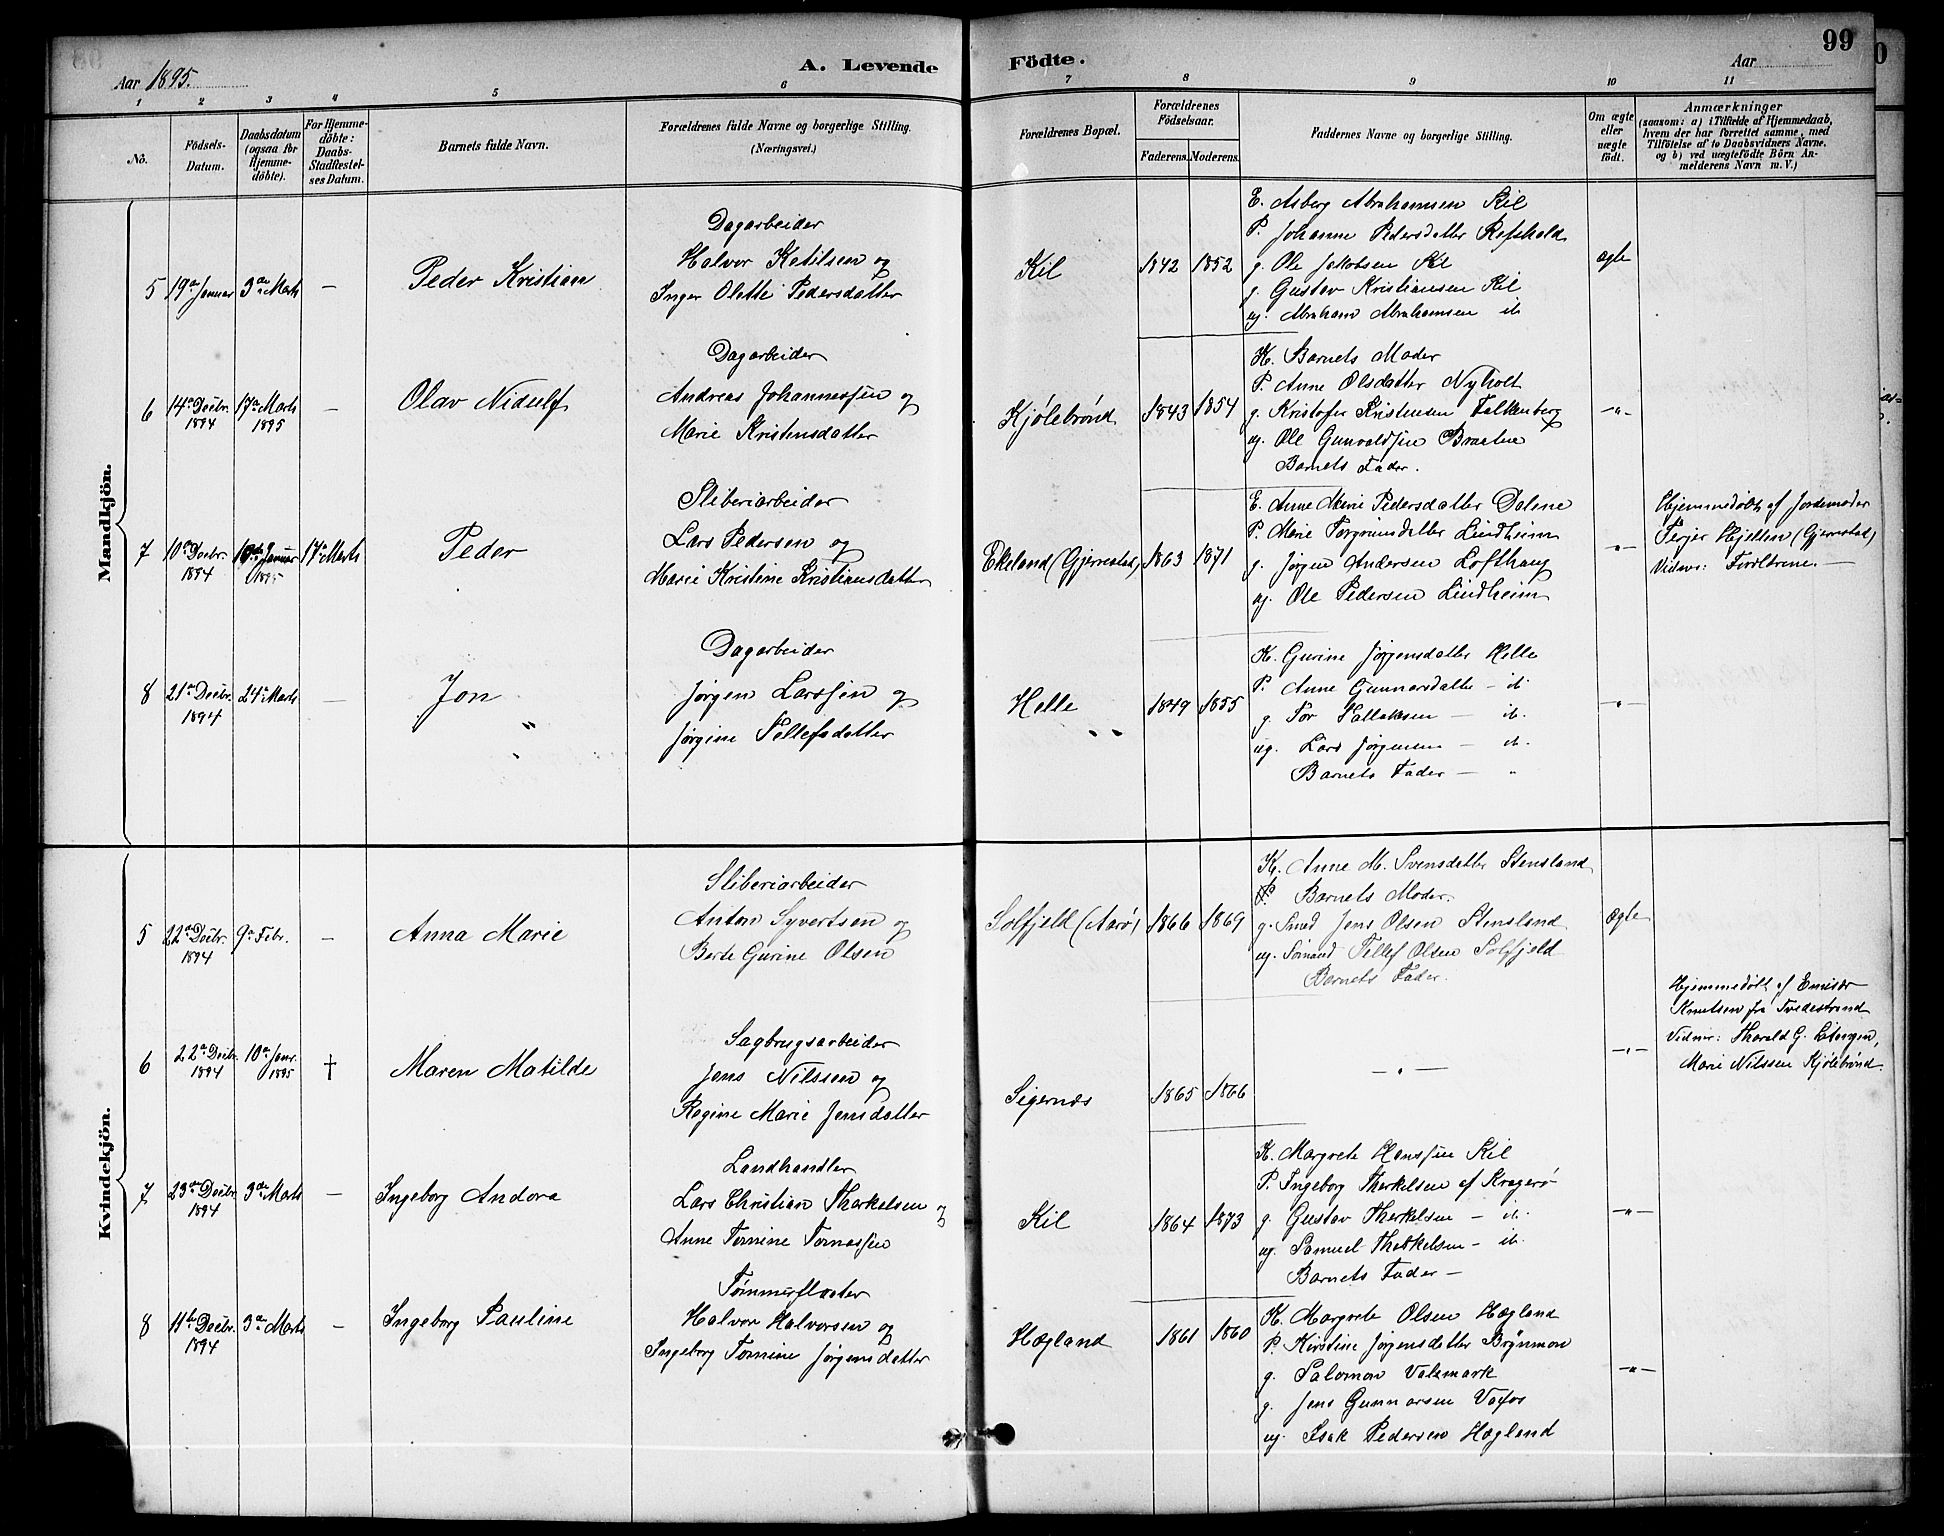 99
Aar 1895.
A. Levende Födte.
Aar
1 2 3 4 5 6 7 8 9 10 11
No.
Födsels-Datum.
Daabsdatum (ogsaa for Hjemme-döbte).
For Hjemme-döbte: Daabs-Stadfæstel-ses Datum.
Barnets fulde Navn.
Forældrenes fulde Navne og borgerlige Stilling.
(Næringsvei.)
Forældrenes Bopæl.
Forældrenes Födselsaar.
Faderens. Moderens.
Faddernes Navne og borgerlige Stilling.
Om ægte eller uægte födt.
Anmærkninger
(saasom: a) i Tilfælde af Hjemmedaab,
hvem der har forrettet samme, med
Tilföielse af to Daabsvidners Navne,
og b) ved uægtefödte Börn An-
melderens Navn m. V.)
Mandkjön.
5 19de Januar 3die Marts — Peder Kristian
Dagarbeider
Halvor Ketilsen og
Inger Olette Pedersdatter
Kil 1842 1852
E. Asberg Abrahamsen Kil
P. Johanne Pedersdatter Refshald
g. Ole Jakobsen Kil
g. Gustav Kristiansen Kil
ug. Abraham Abrahamsen it
ægte
6 14de Decbr. 1894 17de Marts 1895 — Olav Nidulf
Dagarbeider
Andreas Johannessen og
Marie Kristensdatter
Kjølebrønd 1843 1854
K. Barnets Moder
P. Anne Olsdatter Nyholt
g. Kristofer Kristensen Falkenberg
ug. Ole Gunvaldsen Braatene
Barnets Fader.
—"—
7 10de Decbr. 1894 10de Januar 1895 17de Marts Peder
Sliberiarbeider
Lars Pedersen og
Marie Kristine Kristiansdatter
Ekeland (Gjerrestad) 1863 1871
E. Anne Marie Pedersdatter Dalene
P. Marie Torgrimsdatter Lindheim
g. Jørgen Andersen Lofthaug
ug. Ole Pedersen Lindheim
—"—
Hjemmedøbt af Jordemoder
Terjer Hjellen (Gjerrestad)
Vidner: Forældrene. —
8 21de Decbr. 1894 24de Marts — Jon
Dagarbeider
Jørgen Larssen og
Jørgine Tellefsdatter
Helle 1849 1855
K. Gurine Jørgensdatter Helle
P. Anne Gunnarsdatter — it.
g. Tor Tallaksen — it.
ug. Lars Jørgensen — it.
Barnets Fader — "
—"—
Kvindekjön.
5 22de Decbr. 1894 9de Febr. — Anna Marie
Sliberiarbeider
Anton Syvertsen og
Berte Gurine Olsen
Solfjeld (Aarø) 1866 1869
K. Anne M. Svensdatter Stensland
P. Barnets Moder.
g. Smed Jens Olsen Stensland
ug. Sømand Tellef Olsen Solfjeld
Barnets Fader.
Ægte
6 22de Decbr. 1894 10de Janr. 1895 † Maren Matilde
Sagbrugsarbeider
Jens Nilssen og
Regine Marie Jensdatter
Sigernæs 1865 1866
—"—
—"—
Hjemmedøbt af Emisær
Knutsen fra Tvedestrand
Vidner: Tharald G.
Marie Nilssen Kjølebrønd.
7 23de Decbr. 1894 3die Marts — Ingeborg Andora
Landhandler
Lars Christian Therkelsen og
Anne Tomine Tomassen
Kil 1864 1873
K. Margrete Hanssen Kil
P. Ingeborg Therkelsen af Kragerø
g. Gustav Therkelsen — it.
ug. Samuel Therkelsen — it.
Barnets Fader —
—"—
8 11te Decbr. 1894 3die Marts — Ingeborg Pauline
Tømmerfløter
Halvor Halvorsen og
Ingeborg Tomine Jørgensdatter
Hægland 1861 1860
K. Margrete Olsen Hægland
P. Kirstine Jørgensdatter Brønmon
g. Salomon Valsmark
g. Jens Gunnarsen Vafos
ug. Isak Pedersen Hægland
—"—